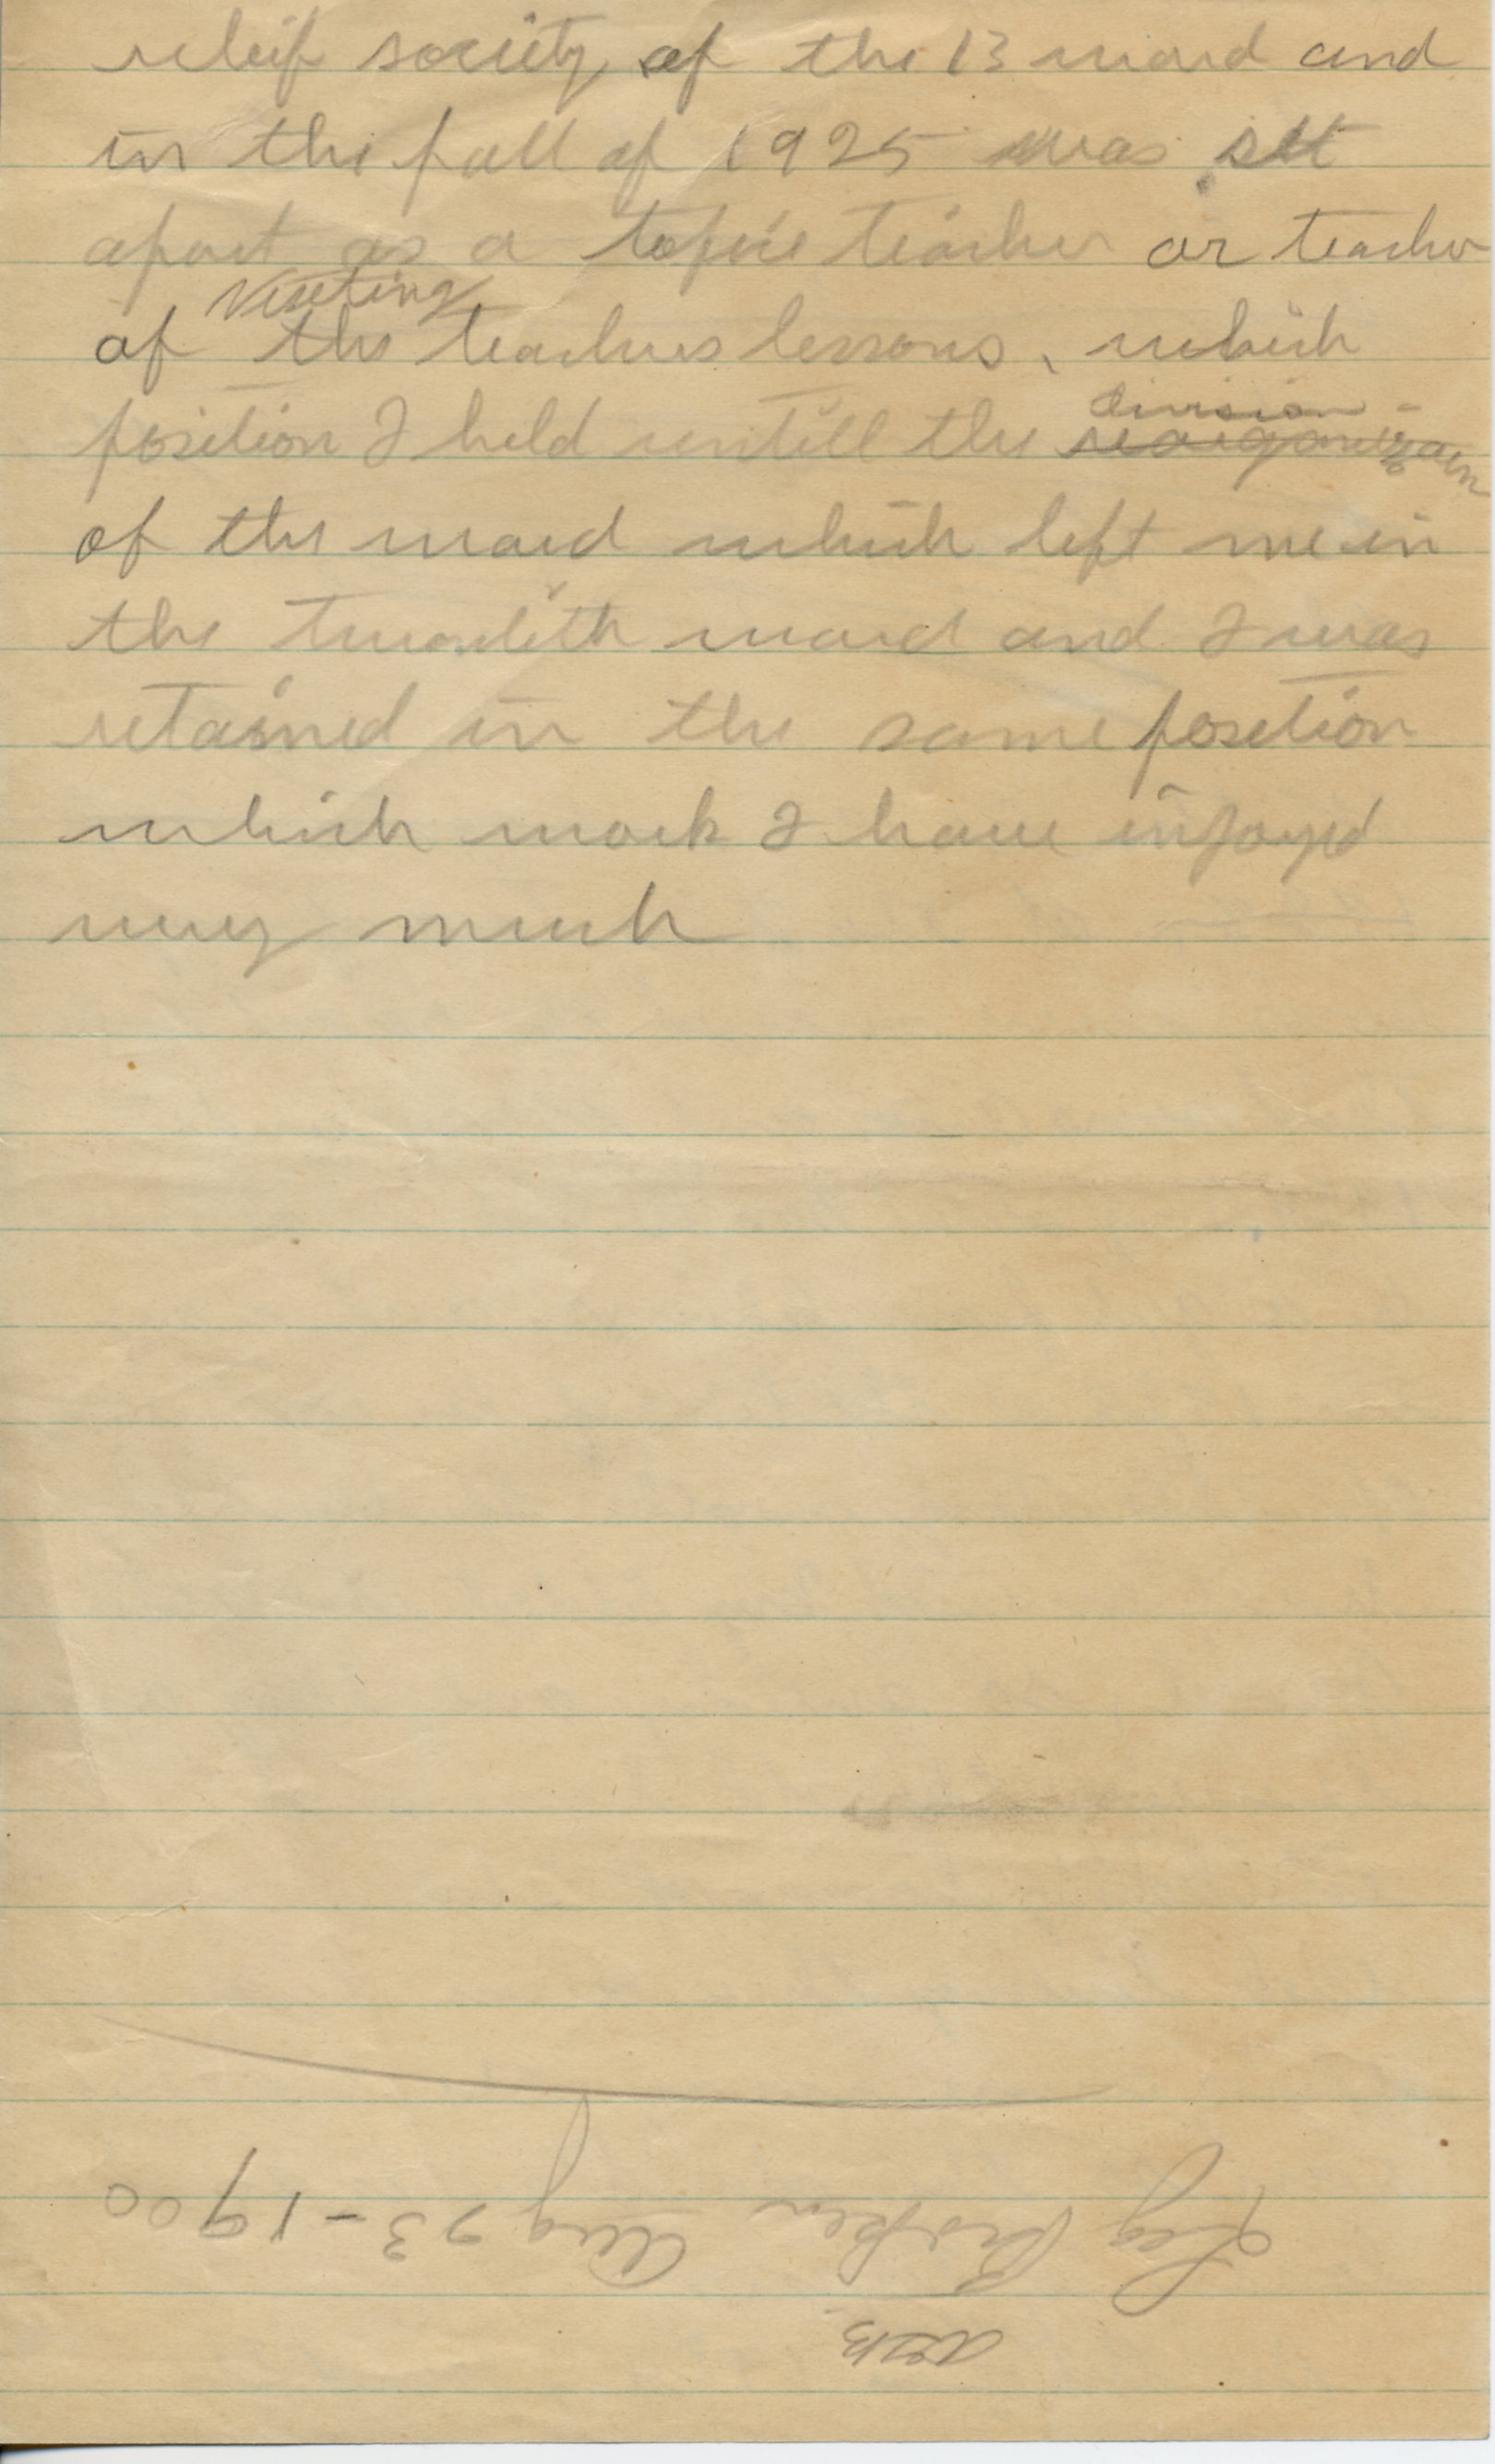 releif society of the 13 ward and
in the fall of 1925 was set
apart as a topic teacher or teacher
visiting
of the teachers lessons, which
division
position I held untill the reorganizaen
of the ward which left me in
the twentith ward and I was
retained in the same position
which work I have injoyed
very much
Leg Broken Aug 23-1900